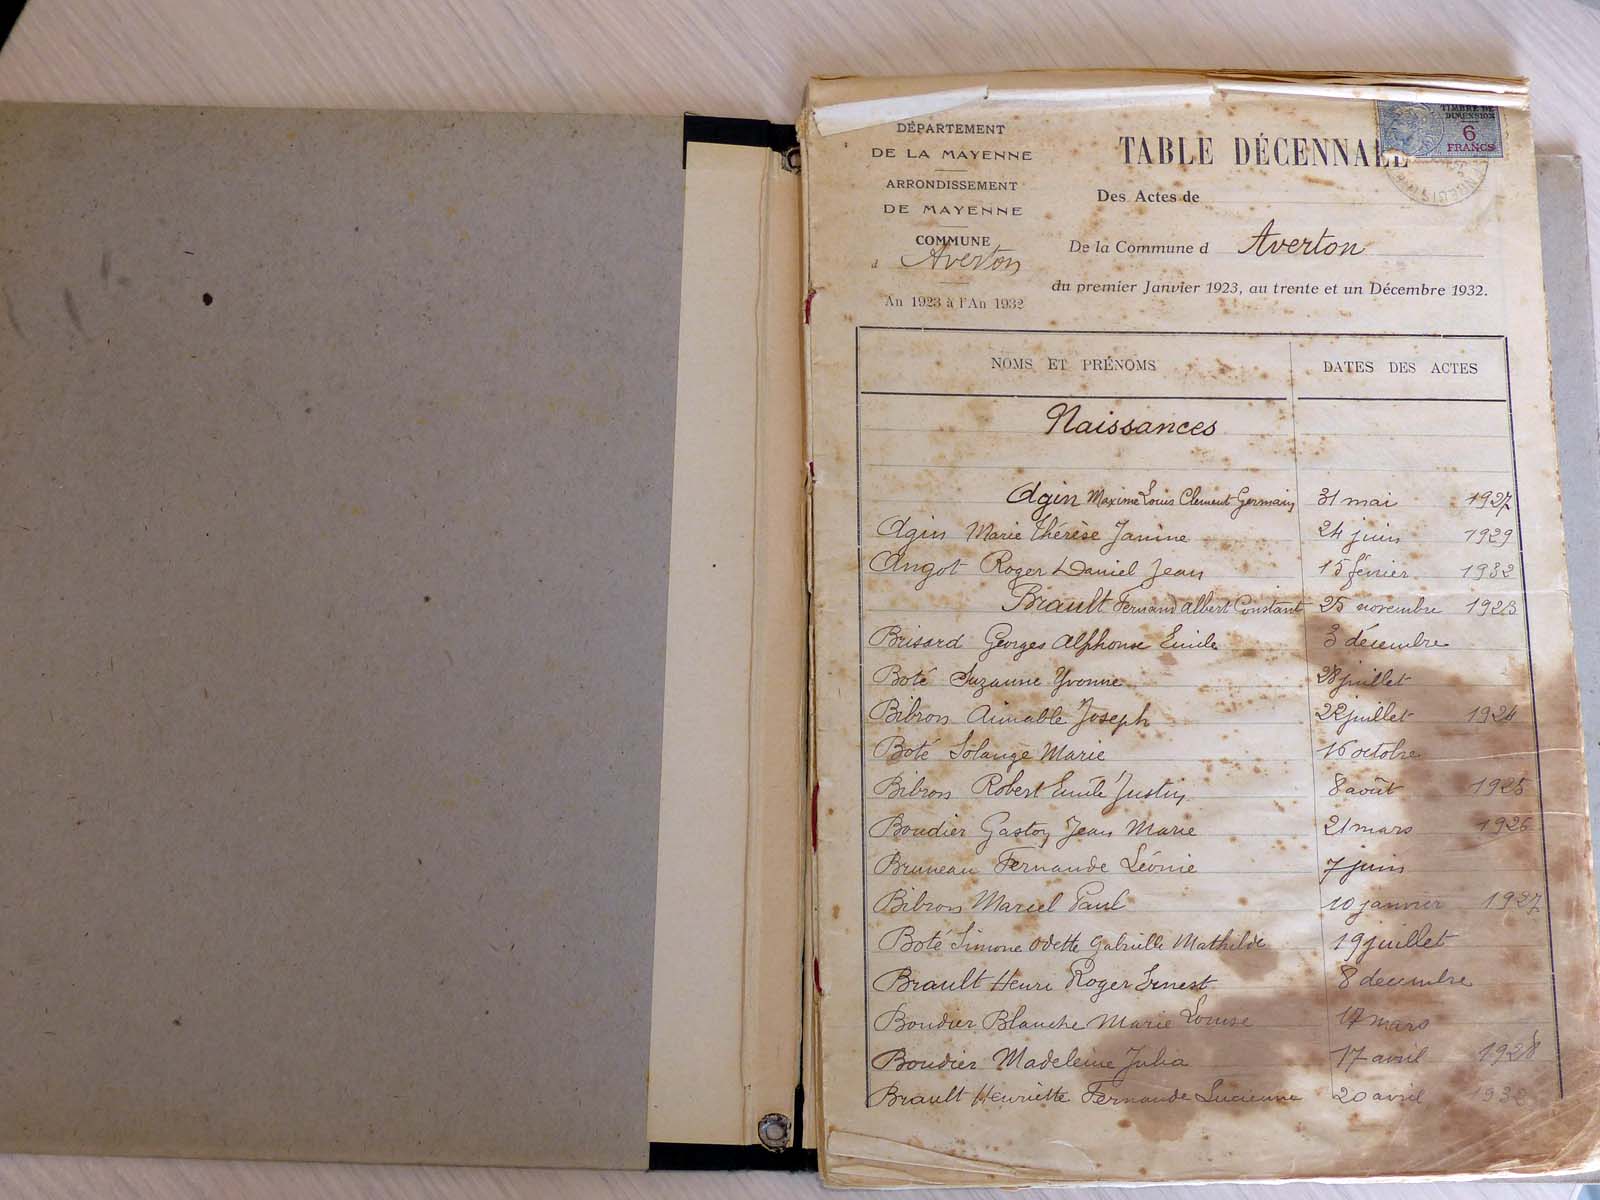 DÉPARTEMENT
DE LA MAYENNE
ARRONDISSEMENT
DE MAYENNE
COMMUNE
d Averton
An 1923 à l'An 1932
TIMBRE DE
DIMENSION
6
FRANCS
TABLE DÉCENNALE
Des Actes de
De la Commune d Averton
du premier Janvier 1923, au trente et un Décembre 1932.
NOMS ET PRÉNOMS DATES DES ACTES
Naissances
Agin Maxime Louis Clement Germain 31 mai 1927
Agin Marie Thérèse Janine 24 juin 1929
Angot Roger Daniel Jean 15 février 1932
Brault Fernand Albert Constant 25 novembre 1923
Brisard Georges Alphonse Emile 3 décembre
Boté Suzanne Yvonne 28 juillet
Bibron Aimable Joseph 22 juillet 1924
Boté Solange Marie 16 octobre
Bibron Robert Emile Justin 8 août 1925
Boudier Gaston Jean Marie 21 mars 1926
Bruneau Fernande Léonie 7 juin
Bibron Marcel Paul 10 janvier 1927
Boté Simone Odette Gabrielle Mathilde 19 juillet
Brault Henri Roger Ernest 8 decembre
Boudier Blanche Marie Louise 17 mars
Boudier Madeleine Julia 17 avril 1928
Brault Henriette Fernande Lucienne 20 avril